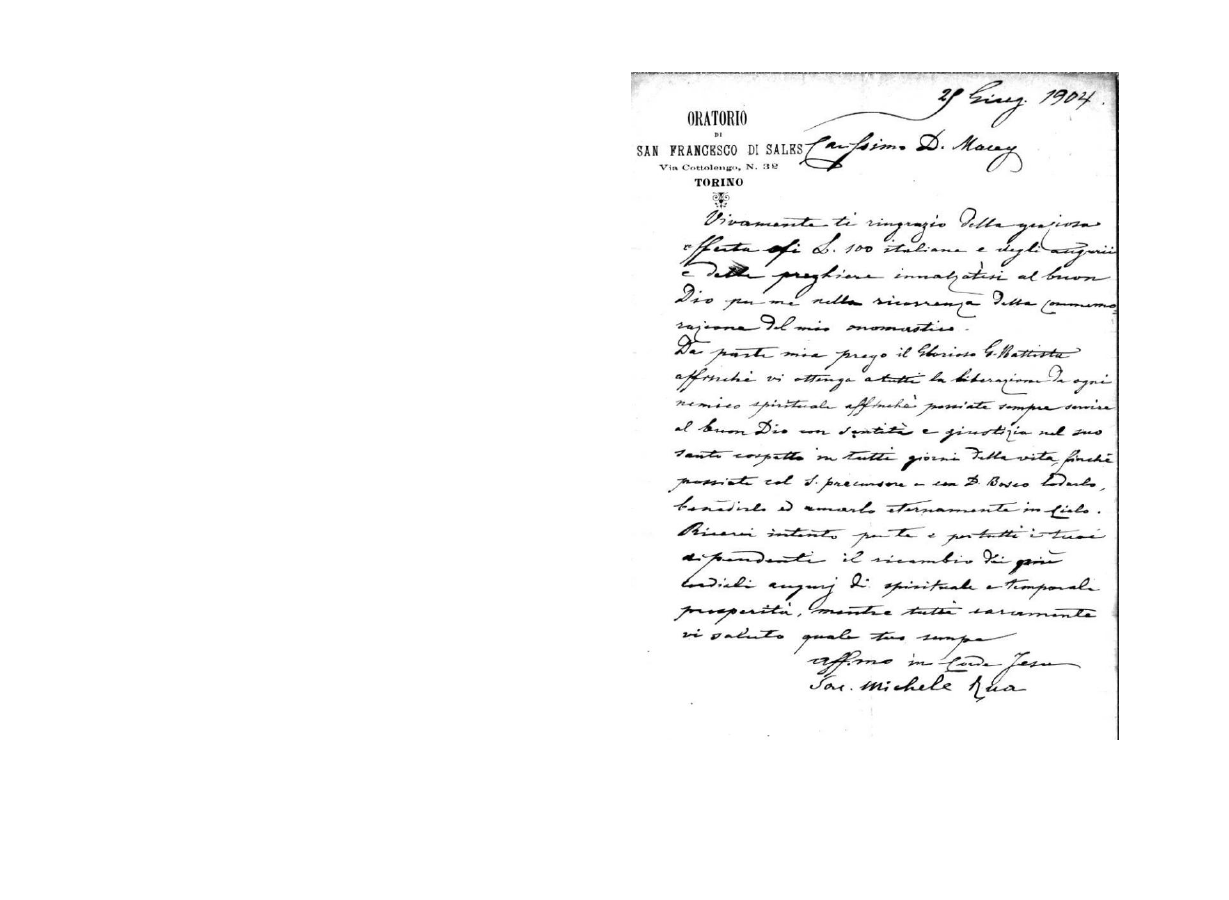 29 Giug. 1904.
ORATORIO
DI
SAN FRANCESCO DI SALES
Via Cottolengo, N. 32
TORINO
Carissimo D. Macey
Vivamente ti ringrazio della graziosa
offerta di L. 100 italiane e degli augurii
e delle preghiere innalzatesi al buon
Dio per me nella ricorrenza della commemo
razione del mio onomastico.
Da parte mia prego il Glorioso G. Battista
affinchè vi ottenga a tutti la liberazione da ogni
nemico spirituale affinchè possiate sempre servire
al buon Dio con santità e giustizia nel suo
santo cospetto in tutti giorni della vita, finchè
possiate col S. precursore e con D. Bosco lodarlo,
benedirlo ed amarlo eternamente in Cielo.
Ricevi intanto per te e per tutti i tuoi
dipendenti il ricambio dei più
cordiali augurj di spirituale e temporale
prosperità, mentre tutti caramente
vi saluto quale tuo sempre
aff.mo in Corde Jesu
Sac. Michele Rua